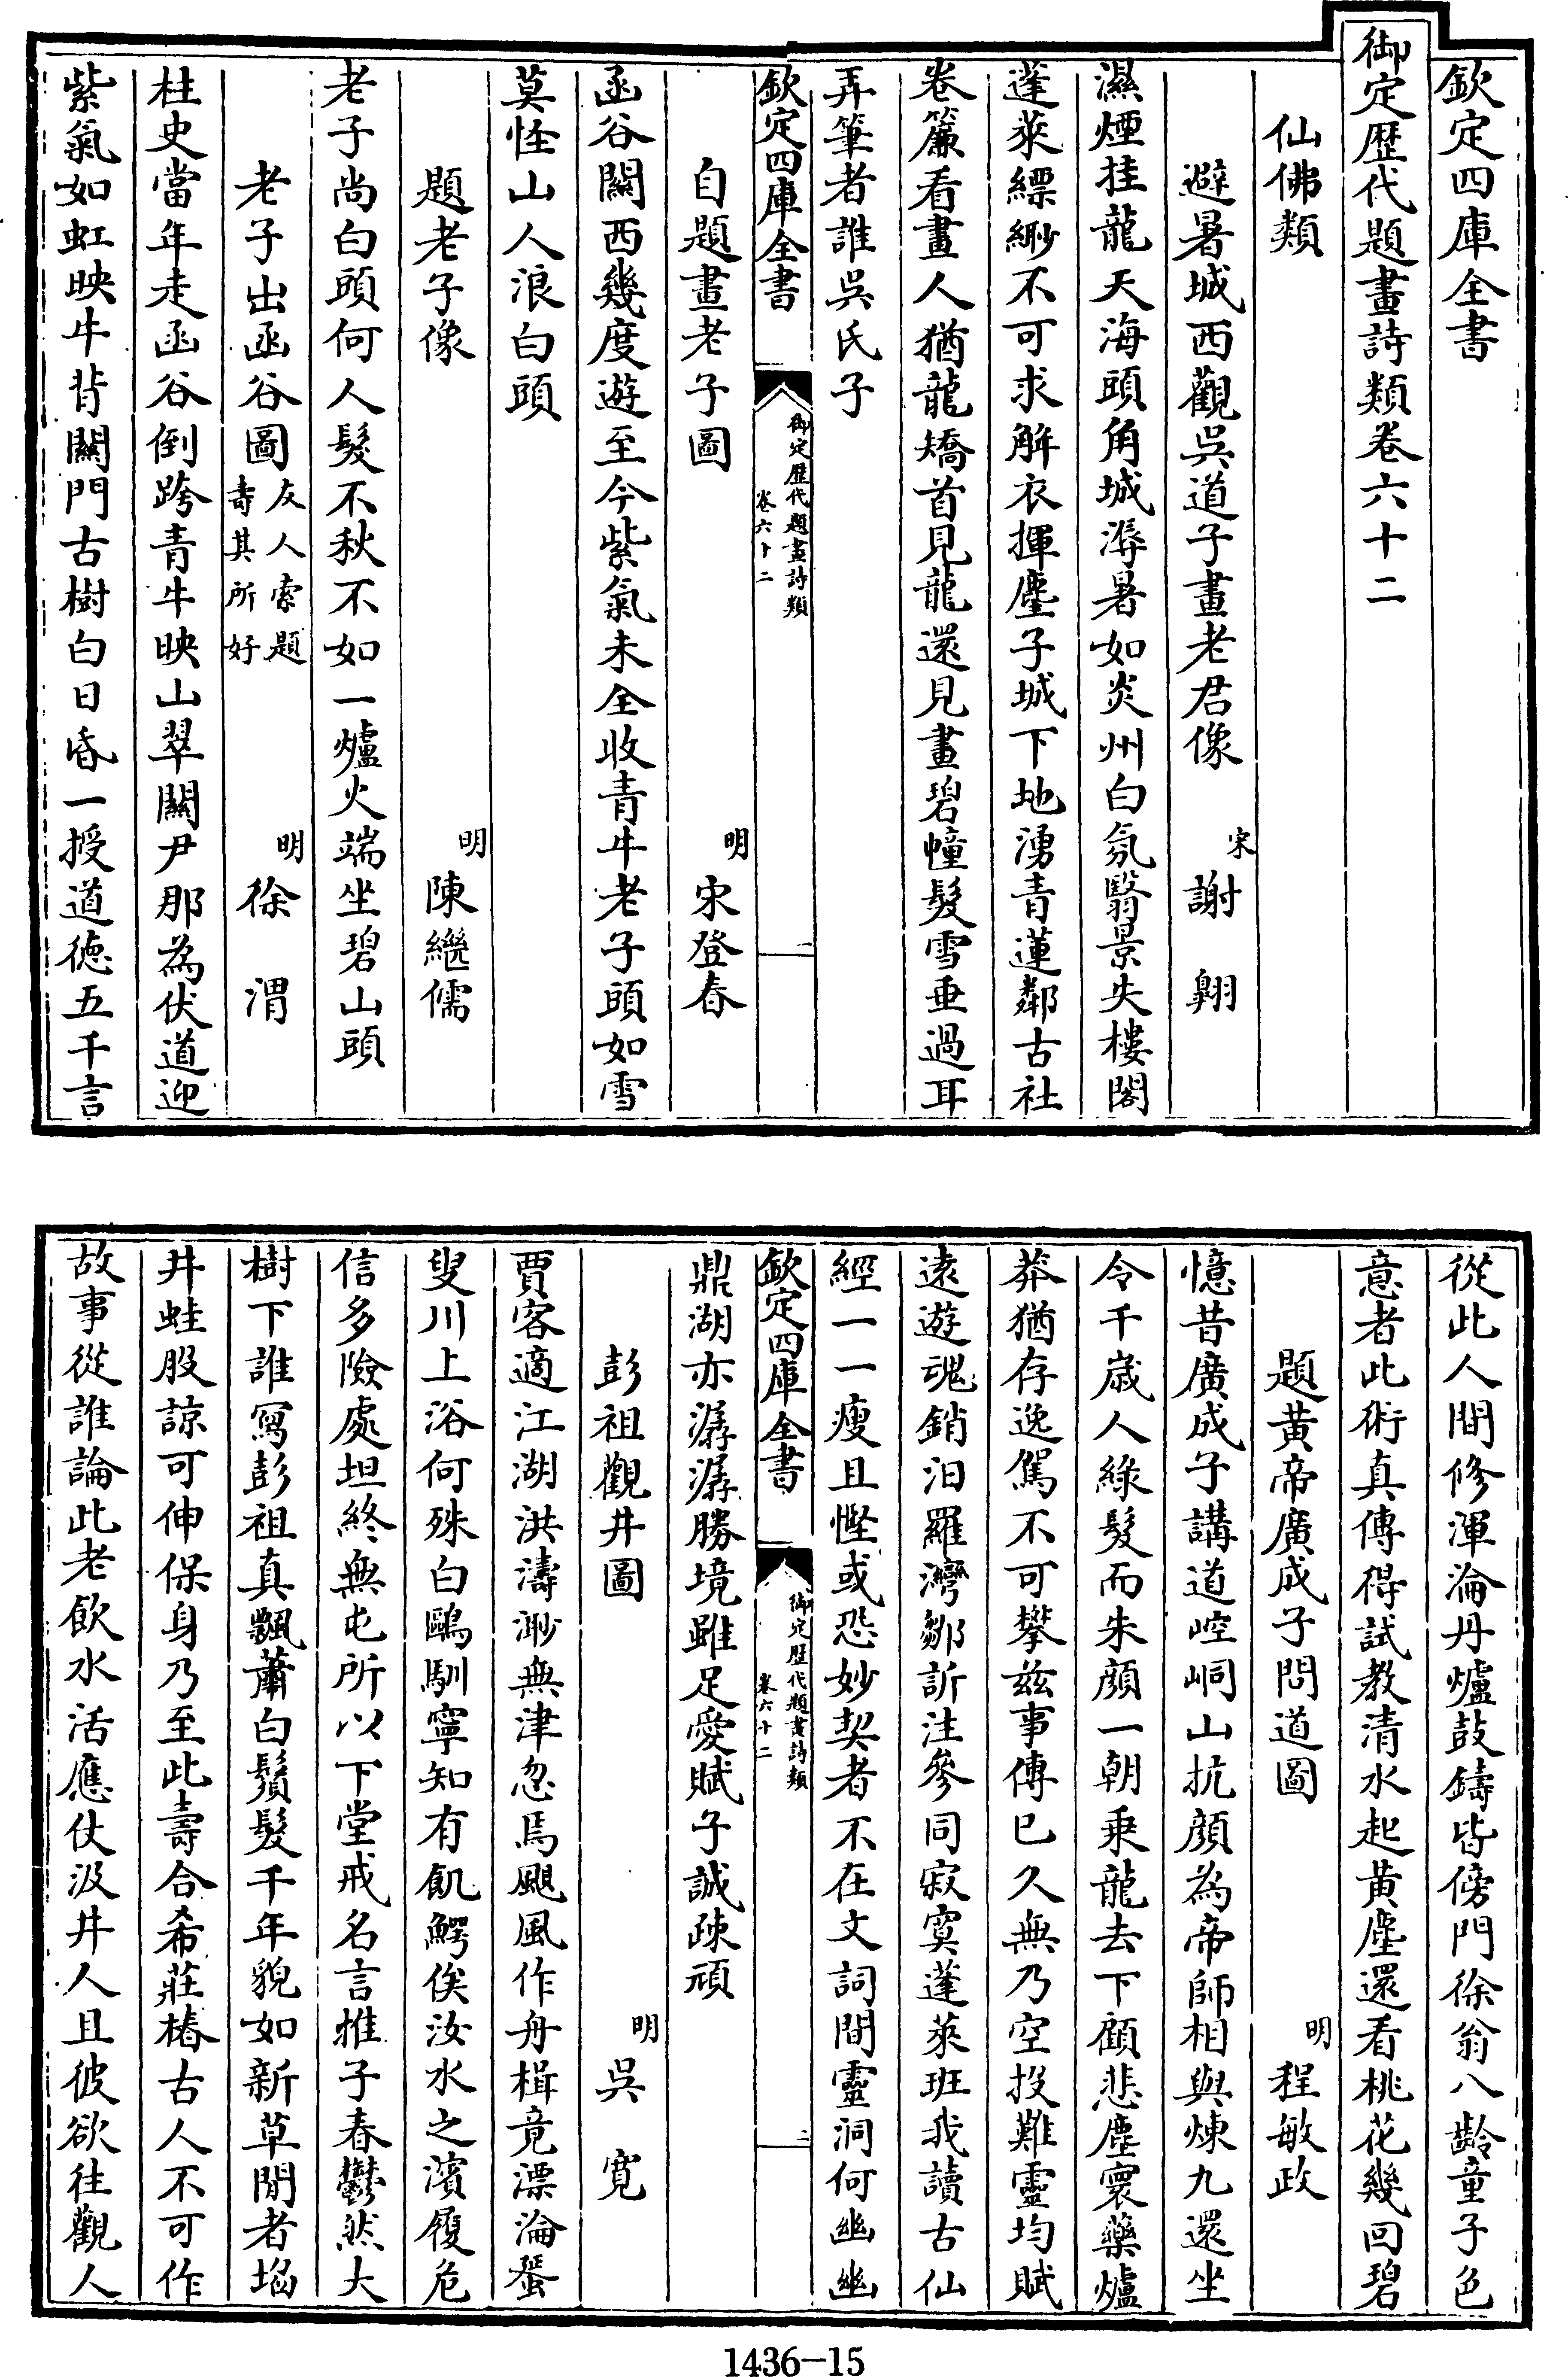 欽定四庫全書
御定歴代題畫詩類卷六十二
仙佛類
避暑城西觀吳道子畫老君像 宋 謝翺
濕煙挂龍天海頭角城溽暑如炎州白氛翳景失樓閣
蓬萊縹緲不可求解衣揮麈子城下地湧青蓮鄰古社
卷簾看畫人猶龍矯首見龍還見畫碧幢髮雪垂過耳
弄筆者誰吳氏子
欽定四庫全書
御定歴代題畫詩類
卷六十二
一
自題畫老子圖 明 宋登春
函谷關西幾度遊至今紫氣未全收青牛老子頭如雪
莫怪山人浪白頭
題老子像 明 陳繼儒
老子尚白頭何人髮不秋不如一爐火端坐碧山頭
老子出函谷圖 友人索題壽其所好 明 徐渭
柱史當年走函谷倒跨青牛映山翠關尹那為伏道迎
紫氣如虹映牛背關門古樹白日昏一授道徳五千言
從此人間修渾淪丹爐鼓鑄皆傍門徐翁八齡童子色
意者此術真傳得試教清水起黄塵還看桃花幾回碧
題黄帝廣成子問道圖 明 程敏政
憶昔廣成子講道崆峒山抗顔為帝師相與煉九還坐
令千歳人綠髮而朱顔一朝乘龍去下顧悲塵寰藥爐
莽猶存逸駕不可攀兹事傳已久無乃空投難靈均賦
遠遊魂銷汨羅灣鄒訢注參同寂寞蓬萊班我讀古仙
經一一瘦且慳或恐妙契者不在文詞間靈洞何幽幽
欽定四庫全書
御定歴代題畫詩類
卷六十二
二
鼎湖亦潺潺勝境雖足愛賦子誠疎頑
彭祖觀井圖 明 吳寛
賈客適江湖洪濤渺無津忽焉颶風作舟楫竟漂淪蜑
叟川上浴何殊白鷗馴寧知有飢鰐俟汝水之濱履危
信多險處坦終無屯所以下堂戒名言推子春鬱然大
樹下誰冩彭祖真飄蕭白鬚髮千年貌如新草閒者塪
井蛙股諒可伸保身乃至此壽合希莊椿古人不可作
故事從誰論此老飲水活應仗汲井人且彼欲往觀人
1436-15